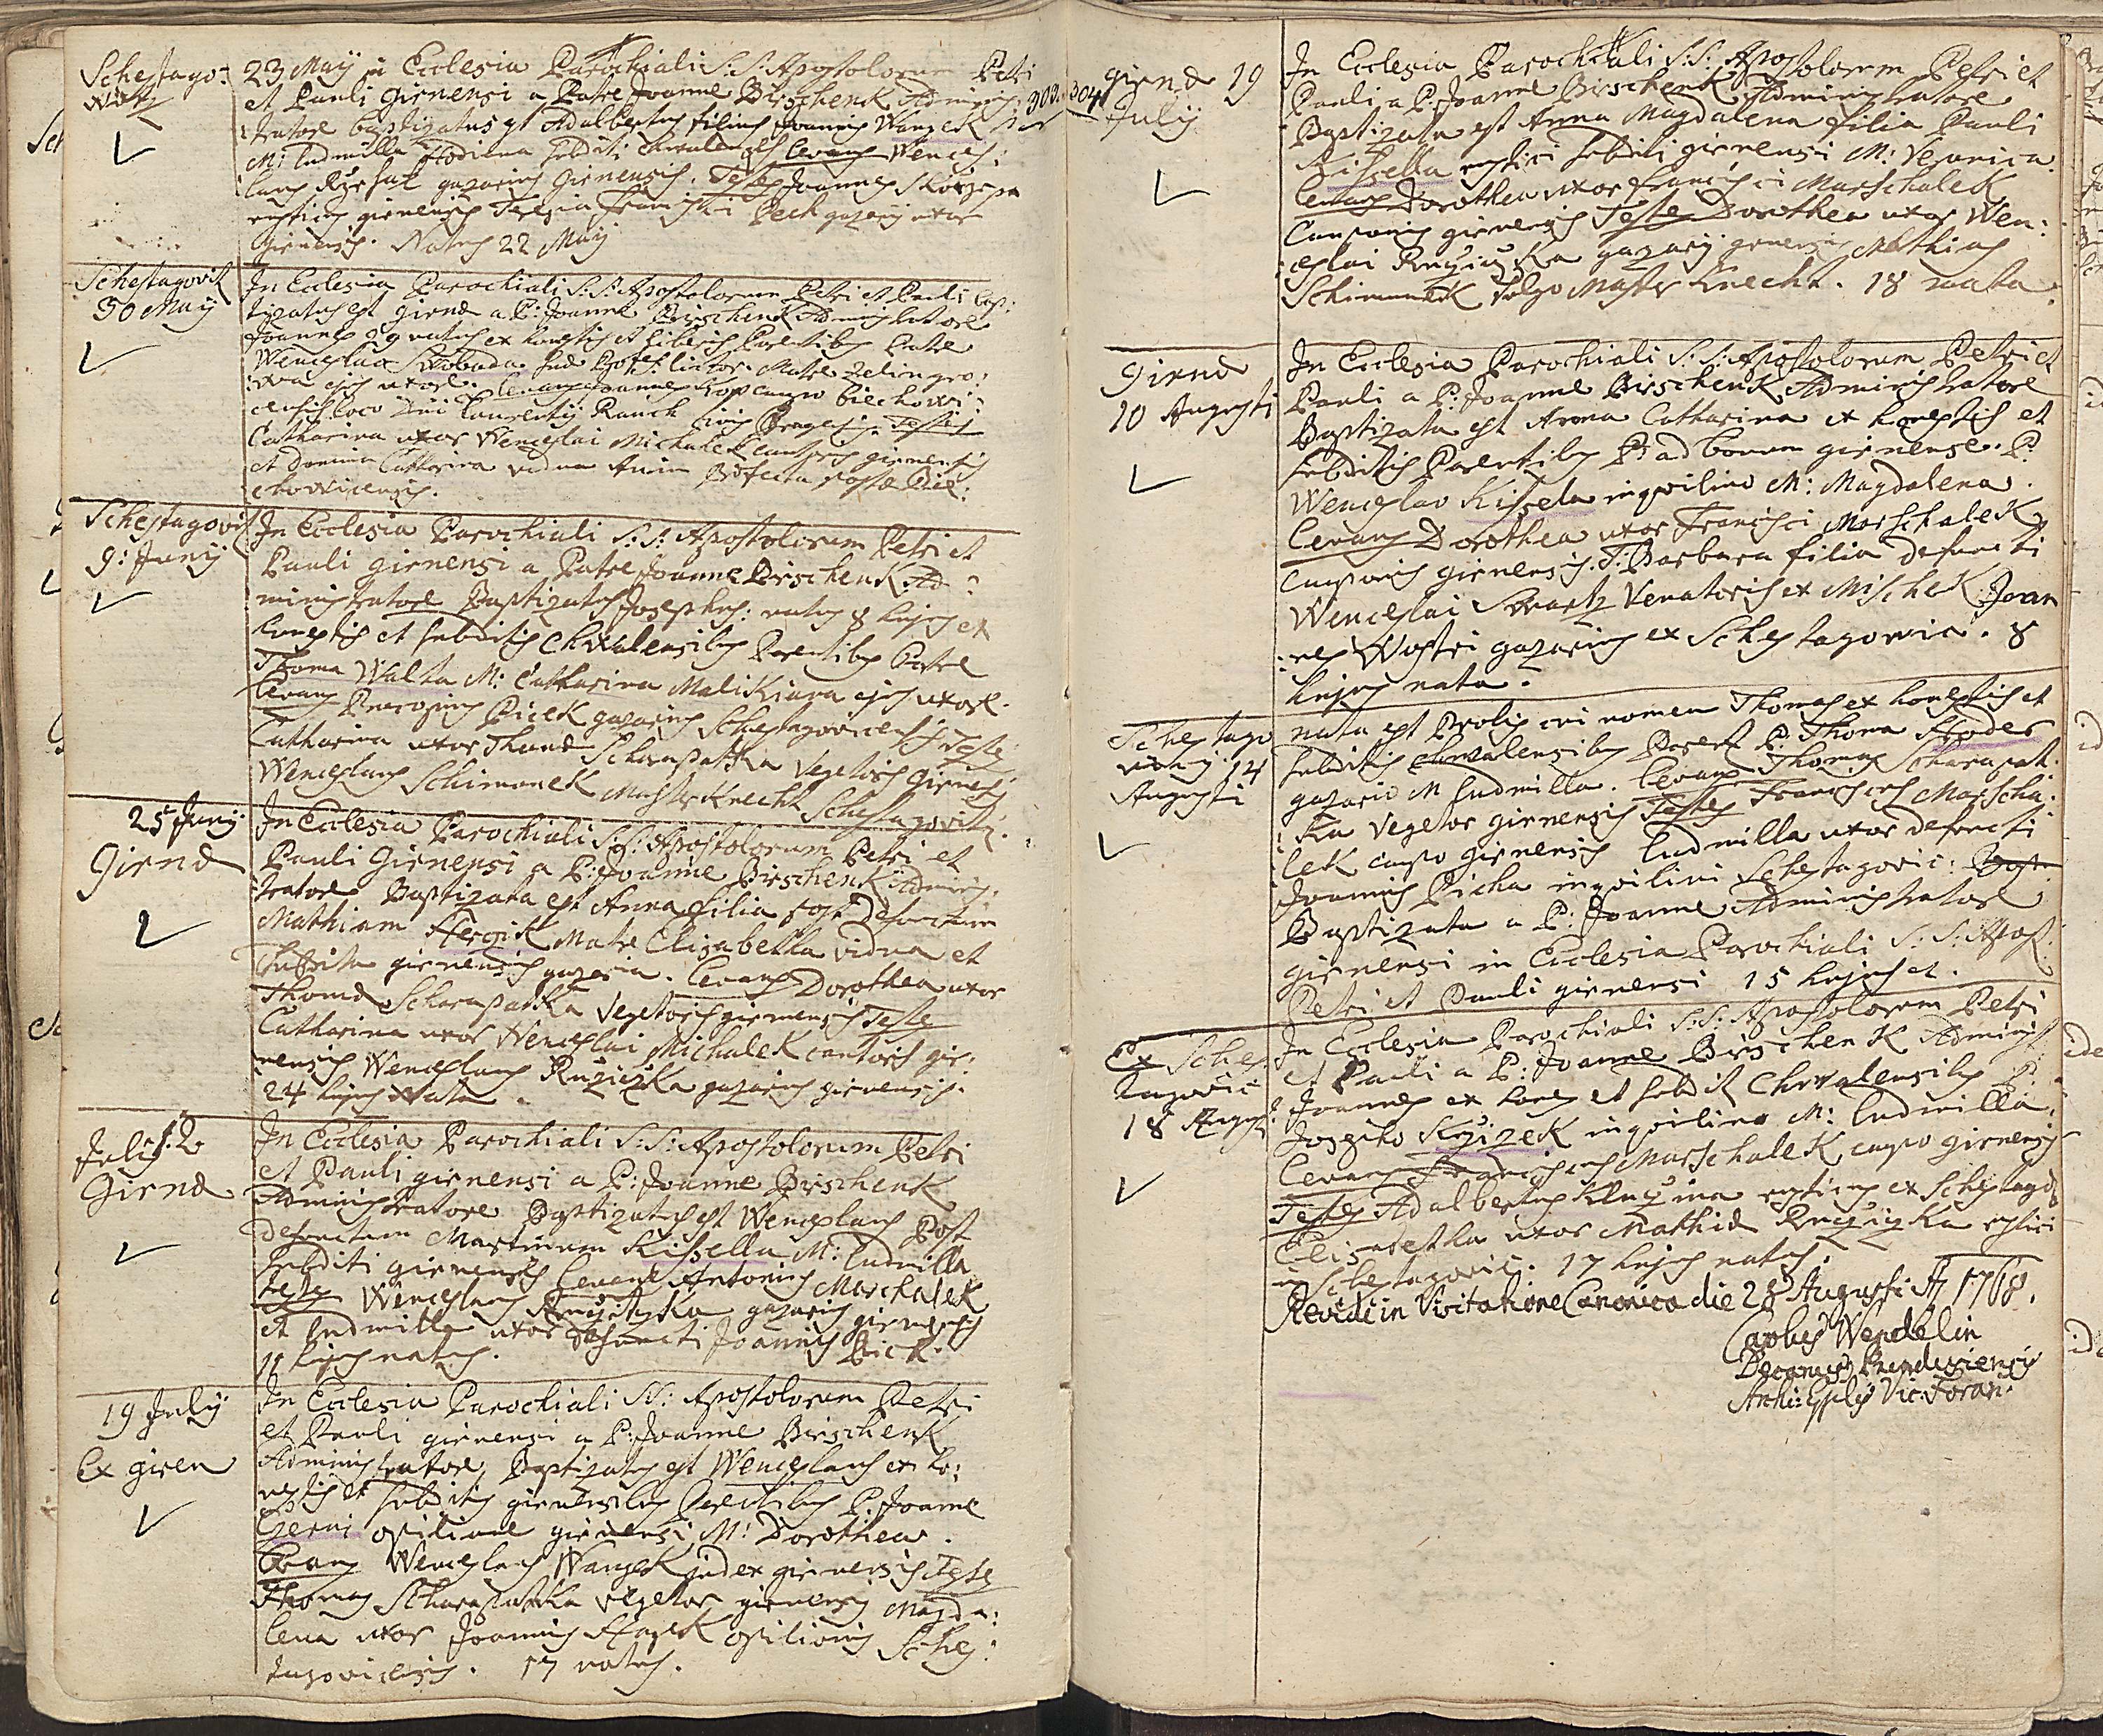 Schestago:
witz
23 Maÿ in Ecclesia Parochiali S: S: Apostolorum Petri
et Pauli Girnensi a Patre Joanne Birschenk Adminis:
tratore baptizatus est Adalbertus filius Joannis Wanzek
M: Ludmilla subditi Chwalensis Levans Wences:
laus gazarius Girnensis. Testes Joannes
rusticus girnensis Teresia Francisci Pech gazarÿ uxor
Girnensis. Natus 22 Maÿ
303. 304
Schestagovitz
30 Maÿ
In Ecclesia Parochiali S: S: Apostolorum Petri et Pauli bap:
tizatus est Girnæ a P: Joanne Birschenk Administratore
Joannes 29 natus ex honestis et liberis Parentibus Patre
Wenceslao Swoboda
ejus uxore. Levans Joannes caupo biechowi:
censis loco Dni Laurentÿ Ranck civis Pragensis. Testes
Catharina uxor Wenceslai Michalek cantoris girnensis
et Domina Catharina vidua
chowicensis.
Schestagovitz
9: Junÿ
In Ecclesia Parochiali S: S: Apostolorum Petri et
Pauli girnensi a Patre Joanne Birschenk Ad:
ministratore Baptizatus Josephus: natus 8 hujus ex
honestis et subditis Chwalensibus Parentibus Patre
Thoma Walta M: Catharina Malikiana ejus uxore.
Levans Procopius Picek gazarius Schestagovicensis Teste
Catharina uxor Thomæ Scharapatka Vegetoris Girnens:
Wenceslaus Schimonek Master Knecht Schestagovitz.
25 Junÿ
Girnæ
In Ecclesia Parochiali S: S: Apostolorum Petri et
Pauli Girnensi a P: Joanne Birschenk Adminis:
tratore Baptizata est Anna filia post defunctum
Mathiam Herzik Matre Elizabetha vidua et
subdita girnensis gazaria. Levans Dorothea uxor
Thomæ Scharapatka Vegetoris girnensis Teste
Catharina uxor Wenceslai Michalek cantoris gir:
nensis Wenceslaus Ruziczka gazarius girnensis.
24 hujus nata.
Julÿ 12
Girnæ
In Ecclesia Parochiali S: S: Apostolorum Petri
et Pauli girnensi a P: Joanne Birschenk
Administratore Baptizatus est Wenceslaus Post
defunctum Martinum Kissella M: Ludmilla
subditi girnensis Levans Antonius Marschalek
testes Wenceslaus Ruziczka gazarius girnensis
et Ludmilla uxor defuncti Joannis Pick.
11 hujus natus.
19 Julÿ
Ex giren
In Ecclesia Parochiali S: S: Apostolorum Petri
et Pauli girnensi a P: Joanne Birschenk
Administratore Baptizatus est Wenceslaus ex ho:
nestis et subditis girnensibus Parentibus P: Joanne
Czerni opilione girnensi M: Dorothea.
Levans Wenceslaus Wanzek judex girnensis Testes
Thomas Scharapatka Vegetor girnensis Magda:
lena uxor Joannis Hasek opilionis Sches:
tagovicensis. 17 natus.
girnæ 19
Julÿ
In Ecclesia Parochiali S: S: Apostolorum Petri et
Pauli a P: Joanne Birschenk Administratore
Baptizata est Anna Magdalena filia Pauli
Kissella rustici subditi girnensi M: Veronica.
Levans Dorothea uxor Francisci Marschalek
Cauponis girnensis Teste Dorothea uxor Wen:
ceslai Ruziczka gazarÿ girnensis Mathias
Schimonek vulgo Master Knecht. 18 nata.
Girnæ
10 Augusti
In Ecclesia Parochiali S: S: Apostolorum Petri et
Pauli a P: Joanne Birschenk Administratore
Baptizata est Anna Catharina ex honestis et
subditis Parentibus ad bonum girnense. P.
Wenceslao Kissela inquilino M: Magdalena.
Levans Dorothea uxor Francisci Marschalek
Cauponis girnensis. T: Barbara filia defuncti
Wenceslai Swartz Venatoris ex Mischek Joan
:nes Wostri gazarius ex Schestagowic. 8
hujus nata.
Schestago
14
Augusti
nata est Prolis cui nomen Thomas ex honestis et
subditis Chwalensibus Parent P: Thoma Hodes
gazario M Ludmilla. Levans Thomas Scharapat:
:ka Vegetor girnensis Testes Franciscus Marscha:
lek caupo girnensis Ludmilla uxor defuncti
Joannis Picha inquilini Schestagovic:
Baptizata a P: Joanne Administratore
girnensi in Ecclesia Parochiali S: S: Apost:
Petri et Pauli girnensi 15 hujus et.
Ex Sches
tagovic
18 August
In Ecclesia Parochiali S: S: Apostolorum Petri
et Pauli a P: Joanne Birschenk Administ
Joannes ex hones et subdit Chwalensibus P:
Josepho Krzizek inquilino M: Ludmilla.
Levans Franciscus Marschalek caupo girnensis
Testes Adalbertus rusticus ex Schestago
Elisabetha uxor Mathiæ Ruziczka rustici
in Schestagovic. 17 hujus natus.
Revidi in Visitatione Canonica die 28 Augusti A 1768.
Carolus Wendelin
Decanus
Archi: Eppalis Vic: Foran: